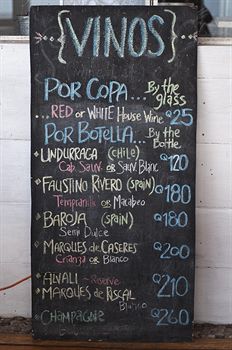 {VINOS}
POR COPA... By the glass
...RED or WHITE House Wine Q25
POR BOTELLA... By the Bottle
UNDURRAGA (CHILE) Q120
Cab Sauv. or Sauv. Blanc
FAUSTINO RIVERO (SPAIN) Q180
Tempranillo OR Macabeo
BAROJA (SPAIN) Q180
Semi Dulce
MARQUES de CASERES Q200
Crianza OR Blanco
ALVALI - Reserve Q210
MARQUES de RISCAL
Blanco
CHAMPAGNE Q260